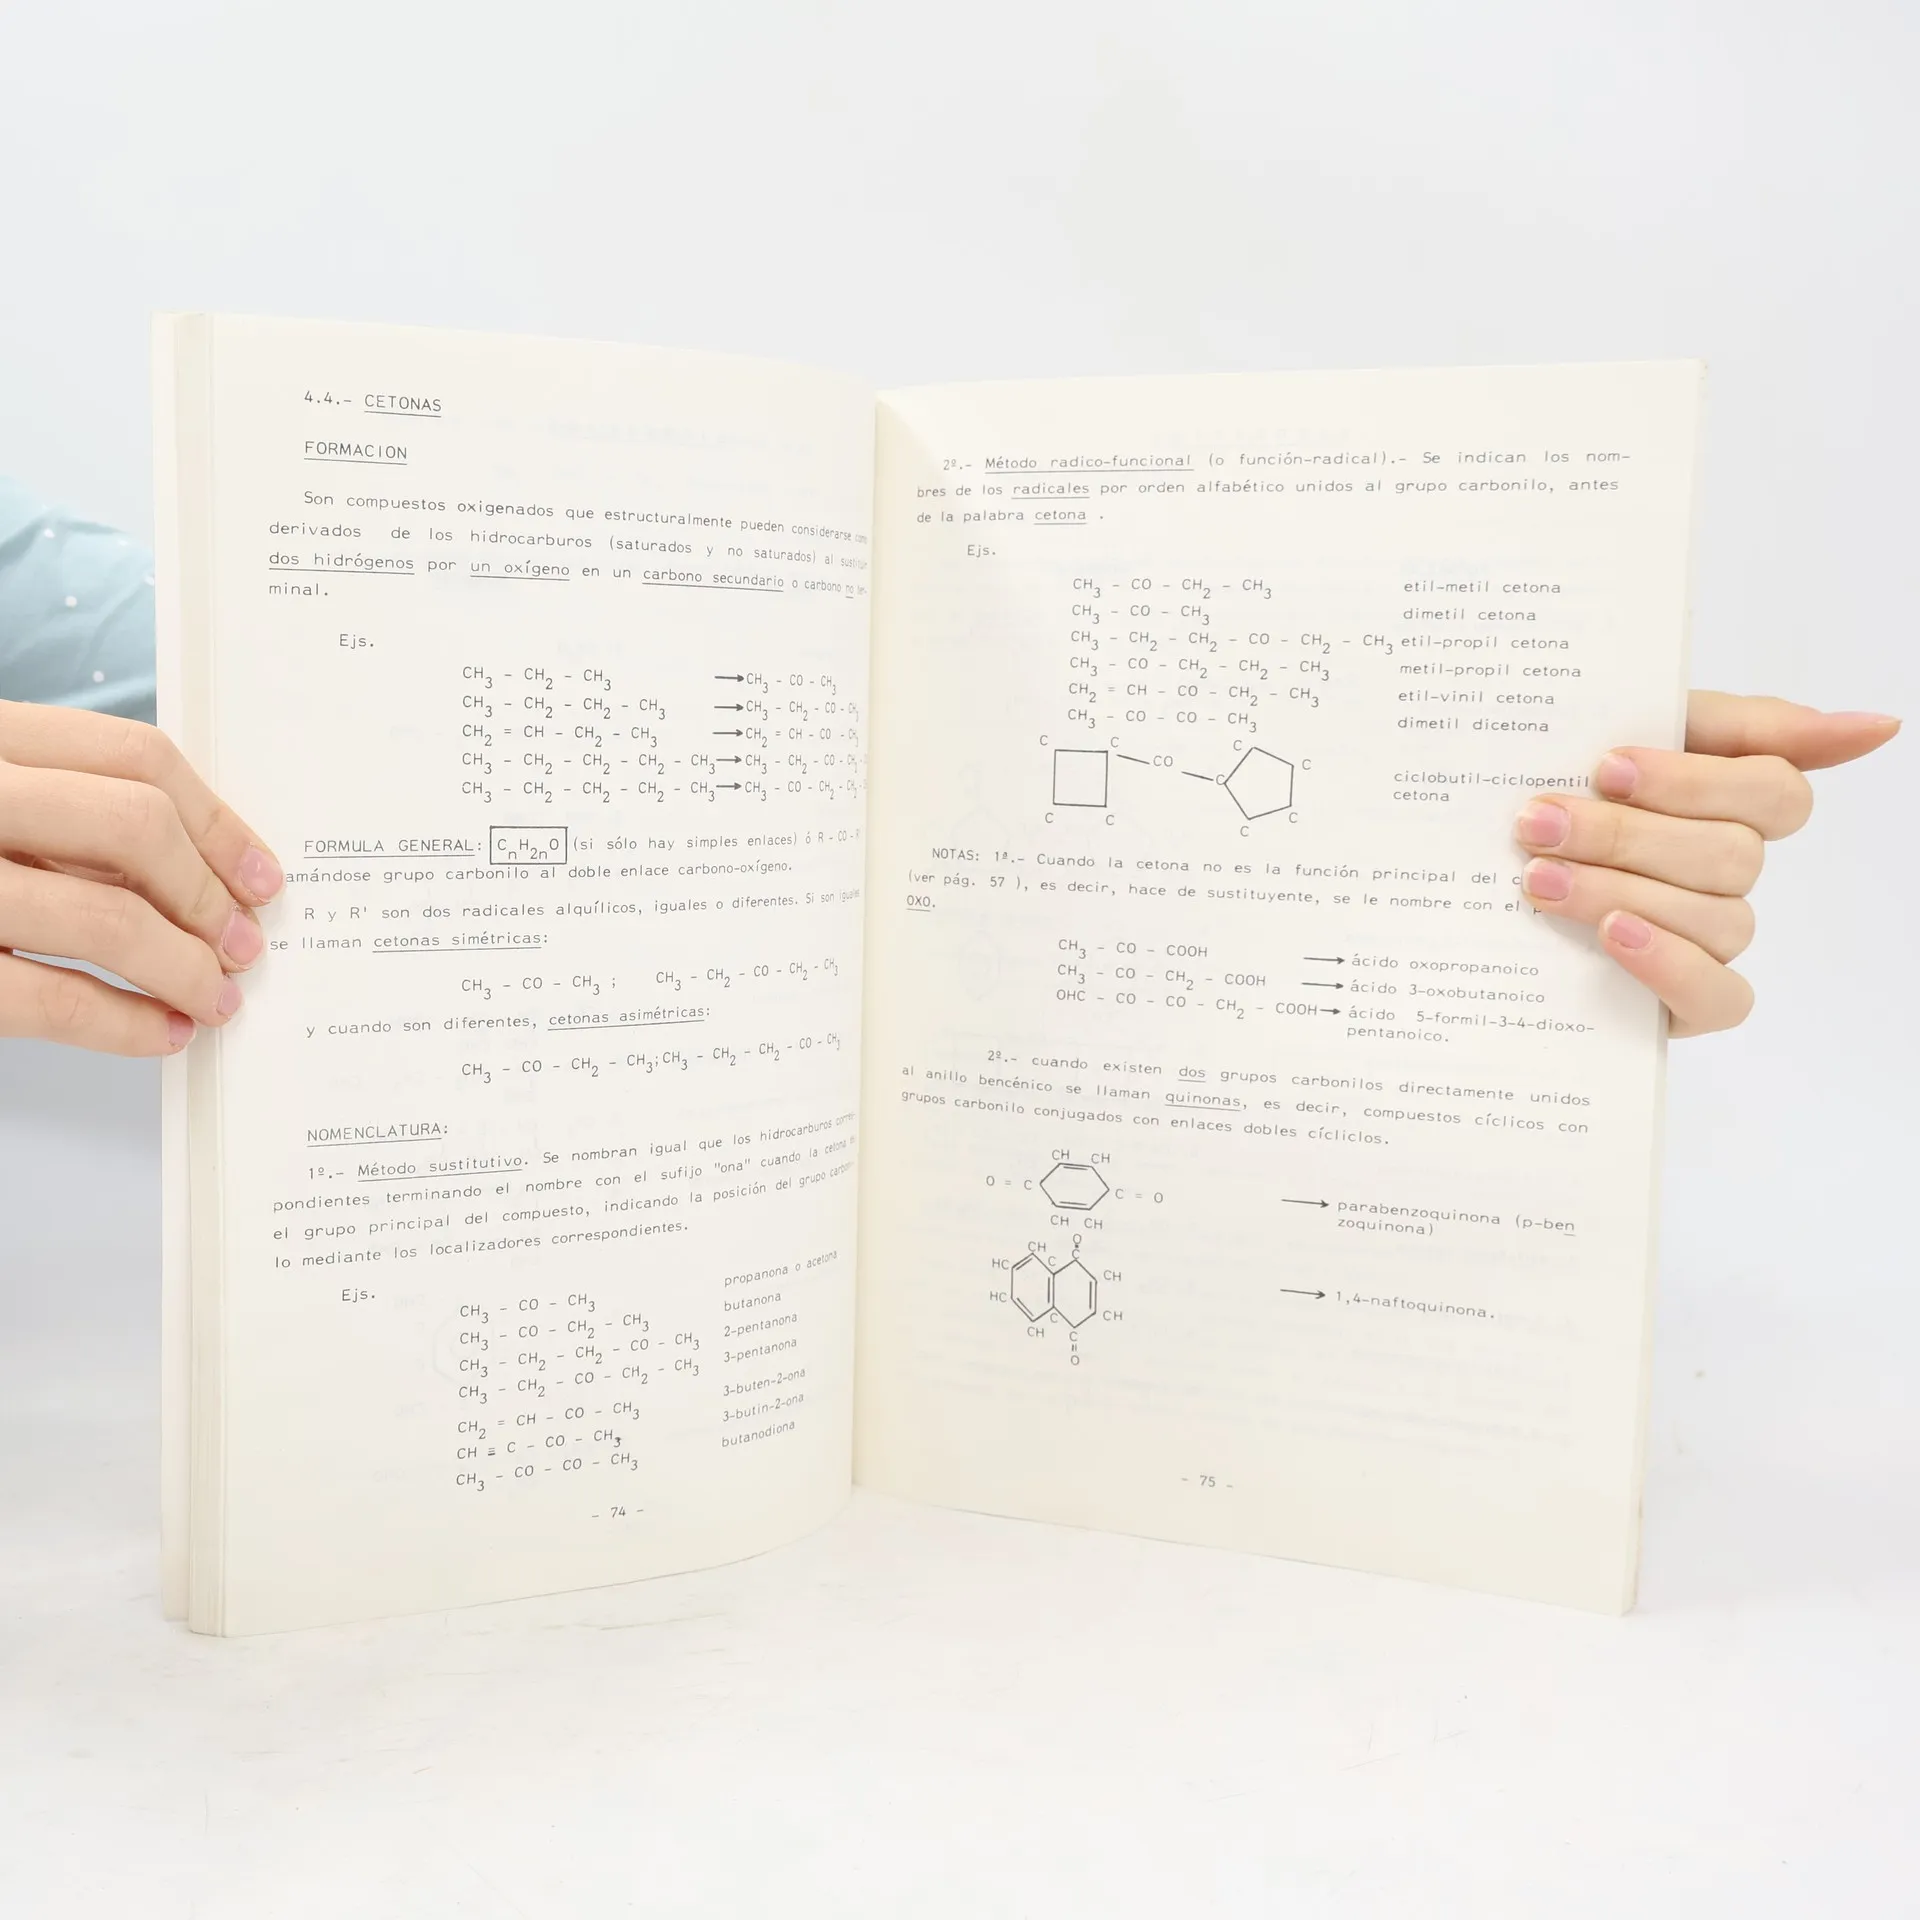 4.4.- CETONAS
FORMACION
Son compuestos oxigenados que estructuralmente pueden considerarse como
derivados de los hidrocarburos (saturados y no saturados) al sustituir
dos hidrógenos por un oxígeno en un carbono secundario o carbono no ter-
minal.
Ejs.
CH3 - CH2 - CH3 → CH3 - CO - CH3
CH3 - CH2 - CH2 - CH3 → CH3 - CH2 - CO - CH3
CH2 = CH - CH2 - CH3 → CH2 = CH - CO - CH3
CH3 - CH2 - CH2 - CH2 - CH3 → CH3 - CH2 - CO - CH2 -
CH3 - CH2 - CH2 - CH2 - CH3 → CH3 - CO - CH2 - CH2 -
FORMULA GENERAL: CnH2nO (si sólo hay simples enlaces) ó R - CO - R'
amándose grupo carbonilo al doble enlace carbono-oxígeno.
R y R' son dos radicales alquílicos, iguales o diferentes. Si son iguales
se llaman cetonas simétricas:
CH3 - CO - CH3 ; CH3 - CH2 - CO - CH2 - CH3
y cuando son diferentes, cetonas asimétricas:
CH3 - CO - CH2 - CH3; CH3 - CH2 - CH2 - CO - CH3
NOMENCLATURA:
1º.- Método sustitutivo. Se nombran igual que los hidrocarburos corres-
pondientes terminando el nombre con el sufijo "ona" cuando la cetona es
el grupo principal del compuesto, indicando la posición del grupo carboni-
lo mediante los localizadores correspondientes.
Ejs.
CH3 - CO - CH3 propanona o acetona
CH3 - CO - CH2 - CH3 butanona
CH3 - CH2 - CH2 - CO - CH3 2-pentanona
CH3 - CH2 - CO - CH2 - CH3 3-pentanona
CH2 = CH - CO - CH3 3-buten-2-ona
CH ≡ C - CO - CH3 3-butin-2-ona
CH3 - CO - CO - CH3 butanodiona
- 74 -
2º.- Método radico-funcional (o función-radical).- Se indican los nom-
bres de los radicales por orden alfabético unidos al grupo carbonilo, antes
de la palabra cetona .
Ejs.
CH3 - CO - CH2 - CH3 etil-metil cetona
CH3 - CO - CH3 dimetil cetona
CH3 - CH2 - CH2 - CO - CH2 - CH3 etil-propil cetona
CH3 - CO - CH2 - CH2 - CH3 metil-propil cetona
CH2 = CH - CO - CH2 - CH3 etil-vinil cetona
CH3 - CO - CO - CH3 dimetil dicetona
C C C
CO C
C
C C C C
ciclobutil-ciclopentil
cetona
NOTAS: 1ª.- Cuando la cetona no es la función principal del c
(ver pág. 57 ), es decir, hace de sustituyente, se le nombre con el
OXO.
CH3 - CO - COOH → ácido oxopropanoico
CH3 - CO - CH2 - COOH → ácido 3-oxobutanoico
OHC - CO - CO - CH2 - COOH → ácido 5-formil-3-4-dioxo-
pentanoico.
2º.- cuando existen dos grupos carbonilos directamente unidos
al anillo bencénico se llaman quinonas, es decir, compuestos cíclicos con
grupos carbonilo conjugados con enlaces dobles cícliclos.
CH CH
O = C C = O
CH CH
→ parabenzoquinona (p-ben
zoquinona)
O
CH C
HC C CH
HC C CH
CH C
O
→ 1,4-naftoquinona.
- 75 -